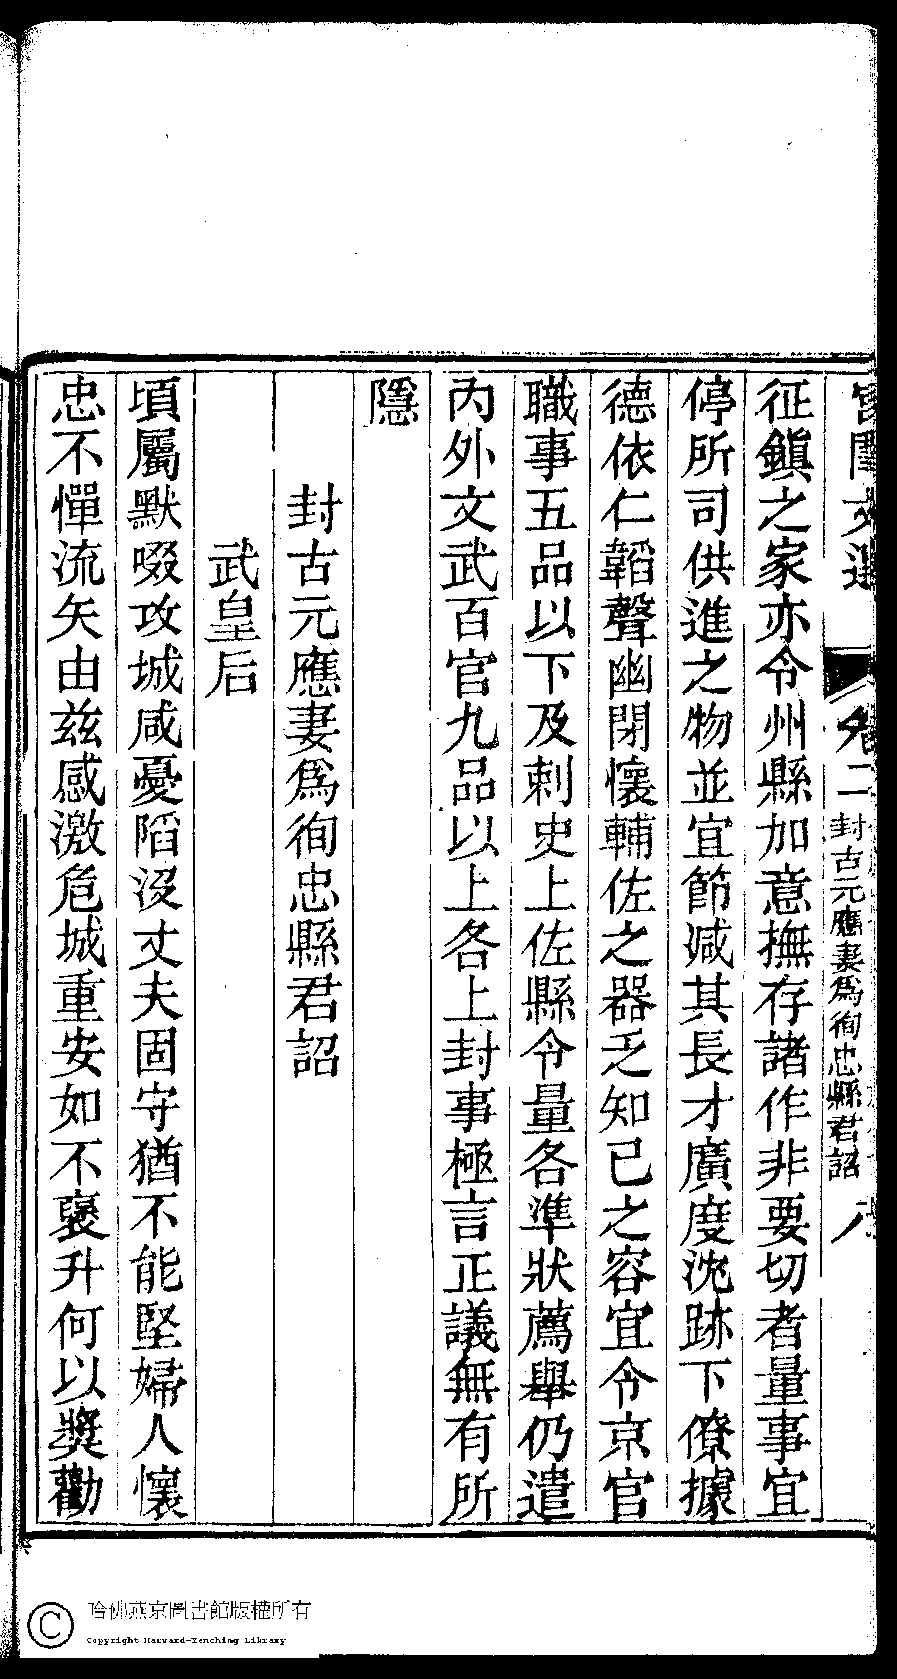 宮閨文選 卷二 封古元應妻爲徇忠縣君詔 八
征鎮之家亦令州縣加意撫存諸作非要切者量事宜
停所司供進之物並宜節減其長才廣度沈跡下僚據
德依仁韜聲幽閉懷輔佐之器乏知己之容宜令京官
職事五品以下及刺史上佐縣令量各準狀薦舉仍遣
內外文武百官九品以上各上封事極言正議無有所
隱
封古元應妻爲徇忠縣君詔
武皇后
頃屬默啜攻城咸憂陷沒丈夫固守猶不能堅婦人懷
忠不憚流矢由茲感激危城重安如不褒升何以獎勸
哈佛燕京圖書館版權所有
Copyright Harvard-Yenching Library